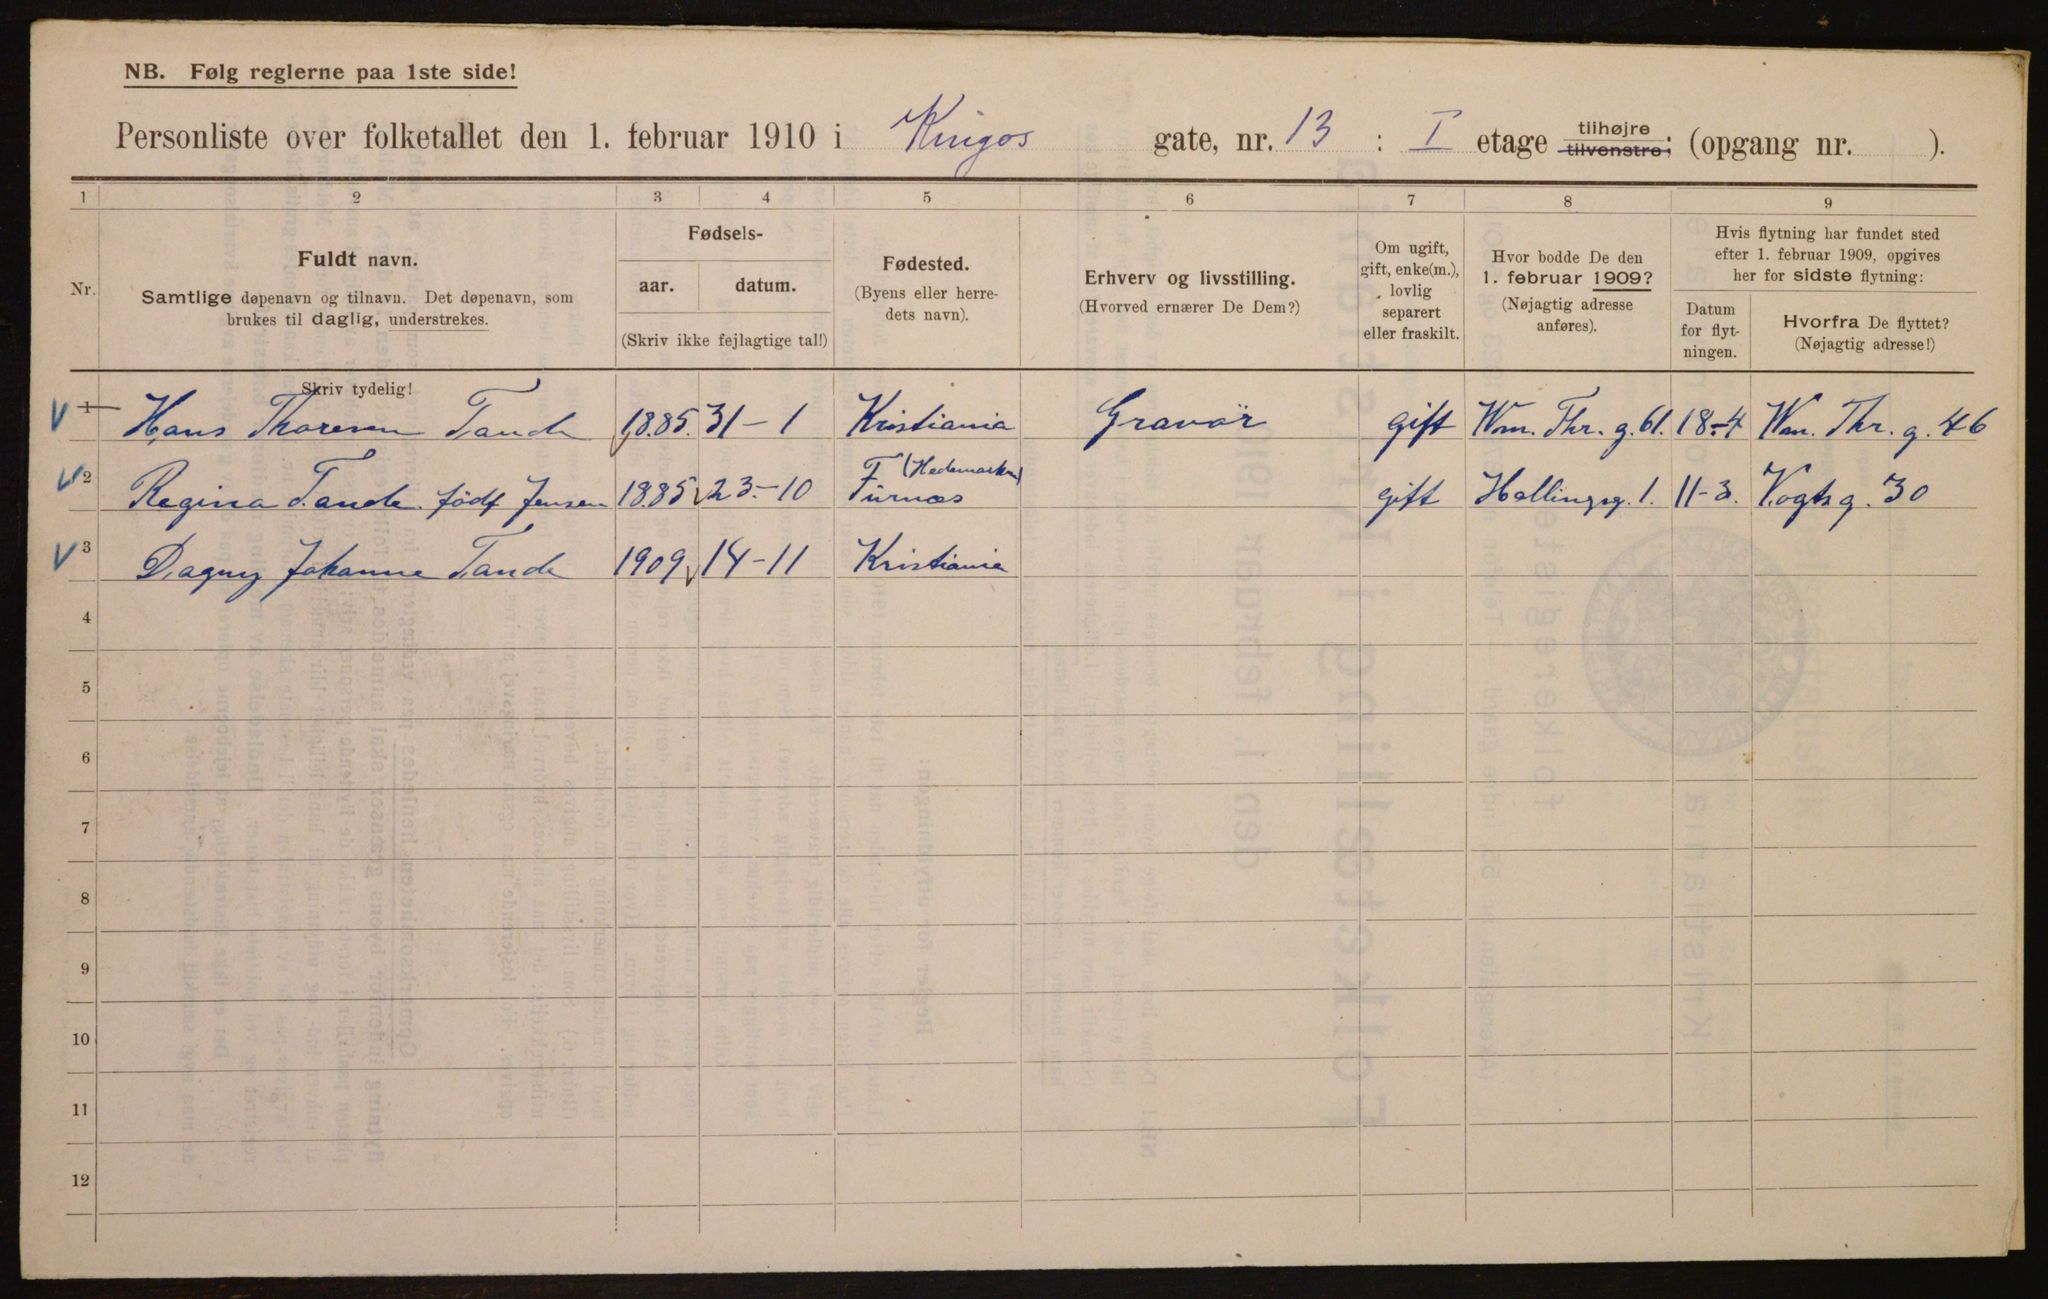 NB. Følg reglerne paa 1ste side!
Personliste over folketallet den 1. februar 1910 i Kingos gate, nr. 13 : I etage tilhøjre tilvenstre; (opgang nr. ).
1 2 3 4 5 6 7 8 9
Nr.
Fuldt navn.
Samtlige døpenavn og tilnavn. Det døpenavn, som
brukes til daglig, understrekes.
Skriv tydelig!
Fødsels-
aar. datum.
(Skriv ikke fejlagtige tal!)
Fødested.
(Byens eller herre-
dets navn).
Erhverv og livsstilling.
(Hvorved ernærer De Dem?)
Om ugift,
gift, enke(m.),
lovlig
separert
eller fraskilt.
Hvor bodde De den
1. februar 1909?
(Nøjagtig adresse
anføres).
Hvis flytning har fundet sted
efter 1. februar 1909, opgives
her for sidste flytning:
Datum
for flyt-
ningen.
Hvorfra De flyttet?
(Nøjagtig adresse!)
1 Hans Thoresen Tande 1885. 31-1 Kristiania Gravör gift Wm. Thr. g. 61. 18-4 Wm. Thr. g. 46
2 Regina Tande. født Jensen 1885 23.-10 Furnæs (Hedemarken) gift Hallingsg. 1. 11-3. Vogts g. 30
3 Dagny Johanne Tande 1909 14-11 Kristiania
4
5
6
7
8
9
10
11
12